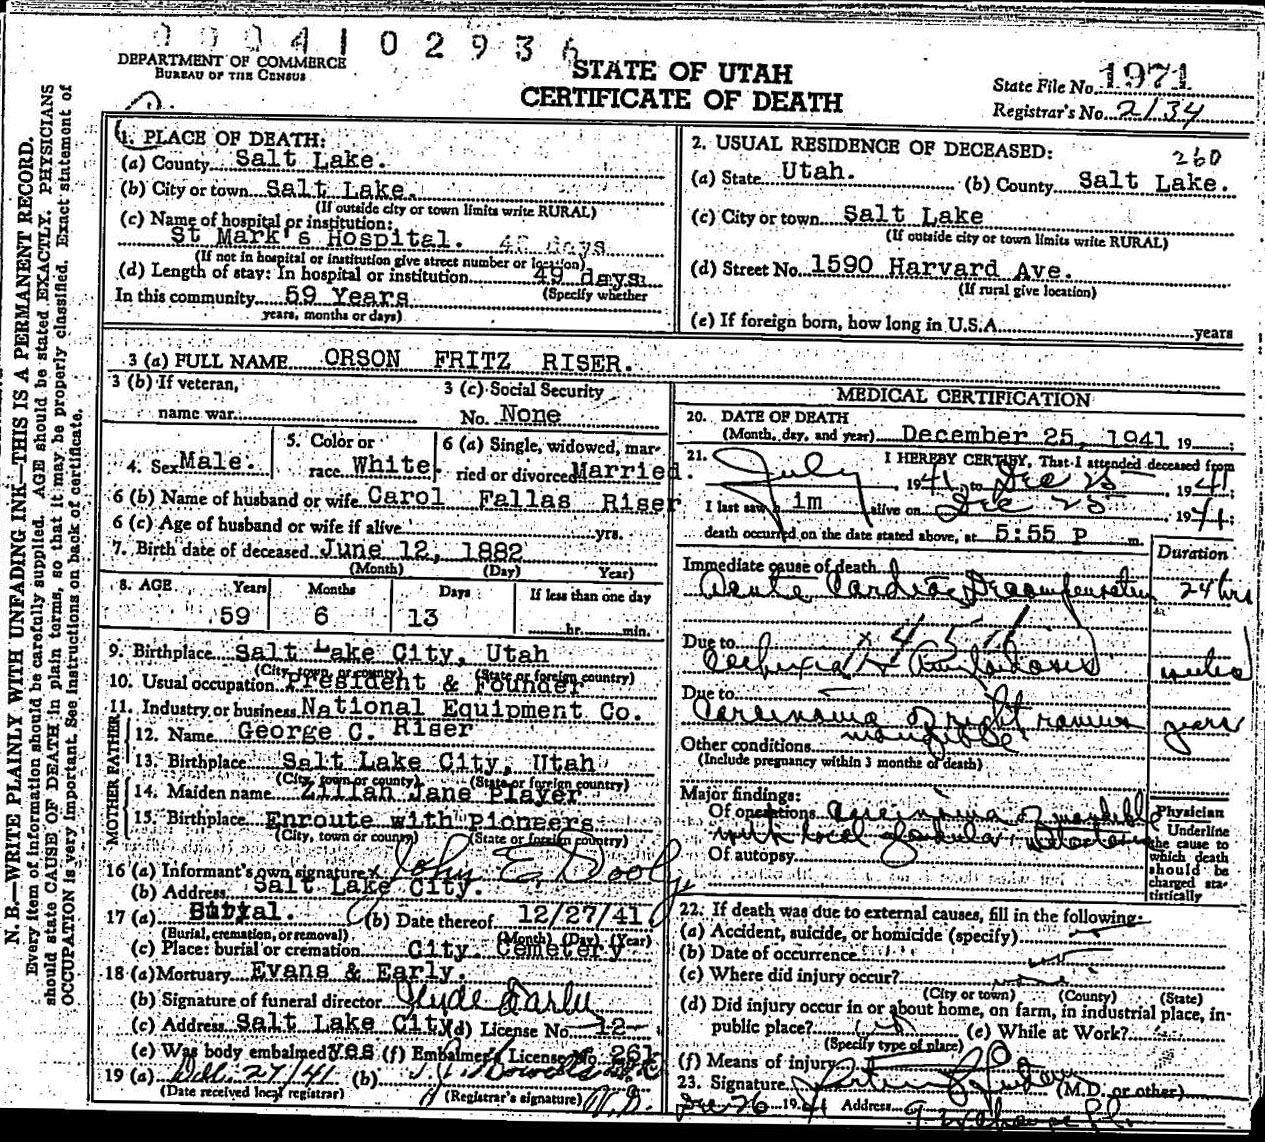 0004102936
DEPARTMENT OF COMMERCE
BUREAU OF THE CENSUS
STATE OF UTAH
CERTIFICATE OF DEATH
State File No. 1971
Registrar's No. 2134
N. B.—WRITE PLAINLY WITH UNFADING INK—THIS IS A PERMANENT RECORD.
Every item of information should be carefully supplied. AGE should be stated EXACTLY. PHYSICIANS
should state CAUSE OF DEATH in plain terms, so that it may be properly classified. Exact statement of
OCCUPATION is very important. See instructions on back of certificate.
1. PLACE OF DEATH:
(a) County Salt Lake.
(b) City or town Salt Lake.
(If outside city or town limits write RURAL)
(c) Name of hospital or institution:
St Mark's Hospital. days
(If not in hospital or institution give street number or location)
(d) Length of stay: In hospital or institution 49 days.
(Specify whether
In this community 59 Years
years, months or days)
2. USUAL RESIDENCE OF DECEASED:
260
(a) State Utah. (b) County Salt Lake.
(c) City or town Salt Lake
(If outside city or town limits write RURAL)
(d) Street No. 1590 Harvard Ave.
(If rural give location)
(e) If foreign born, how long in U.S.A. years
3 (a) FULL NAME ORSON FRITZ RISER.
3 (b) If veteran,
name war
3 (c) Social Security
No. None
4. Sex Male.
5. Color or
race White.
6 (a) Single, widowed, mar-
ried or divorced Married.
6 (b) Name of husband or wife Carol Fallas Riser
6 (c) Age of husband or wife if alive yrs.
7. Birth date of deceased June 12, 1882
(Month) (Day) Year)
8. AGE Years Months Days If less than one day
59 6 13 hr. min.
9. Birthplace Salt Lake City, Utah
(City, town or county) (State or foreign country)
10. Usual occupation President & Founder
11. Industry or business National Equipment Co.
FATHER
12. Name George C. Riser
13. Birthplace Salt Lake City, Utah
(City, town or county) (State or foreign country)
MOTHER
14. Maiden name Zillah Jane Player
15. Birthplace Enroute with Pioneers
(City, town or county) (State or foreign country)
16 (a) Informant's own signature John E. Dooly
(b) Address Salt Lake City.
17 (a) Burial. (b) Date thereof 12/27/41
(Burial, cremation, or removal) (Month) (Day) (Year)
(c) Place: burial or cremation City Cemetery
18 (a) Mortuary Evans & Early.
(b) Signature of funeral director Clyde Early
(c) Address Salt Lake City (d) License No. 12
(e) Was body embalmed? yes (f) Embalmer's License No. 261
19 (a) Dec. 27/41 (b)
(Date received local registrar) (Registrar's signature)
MEDICAL CERTIFICATION
20. DATE OF DEATH
(Month, day, and year) December 25, 1941 19
21. I HEREBY CERTIFY, That I attended deceased from
July 1941, to Dec 25 1941;
I last saw him alive on Dec 25 1941;
death occurred on the date stated above, at 5:55 P m.
Duration
Immediate cause of death
Acute Cardiac Decompensation 24 hrs
Due to
Cachexia
Due to
Carcinoma of right ramus years
mandible
Other conditions
(Include pregnancy within 3 months of death)
Major findings:
Of operations Carcinoma of mandible
with local glandular
Of autopsy
Physician
Underline
the cause to
which death
should be
charged sta-
tistically
22. If death was due to external causes, fill in the following:
(a) Accident, suicide, or homicide (specify)
(b) Date of occurrence
(c) Where did injury occur?
(City or town) (County) (State)
(d) Did injury occur in or about home, on farm, in industrial place, in
public place? (e) While at Work?
(Specify type of place)
(f) Means of injury
23. Signature (M.D. or other)
Dec 26 1941 Address